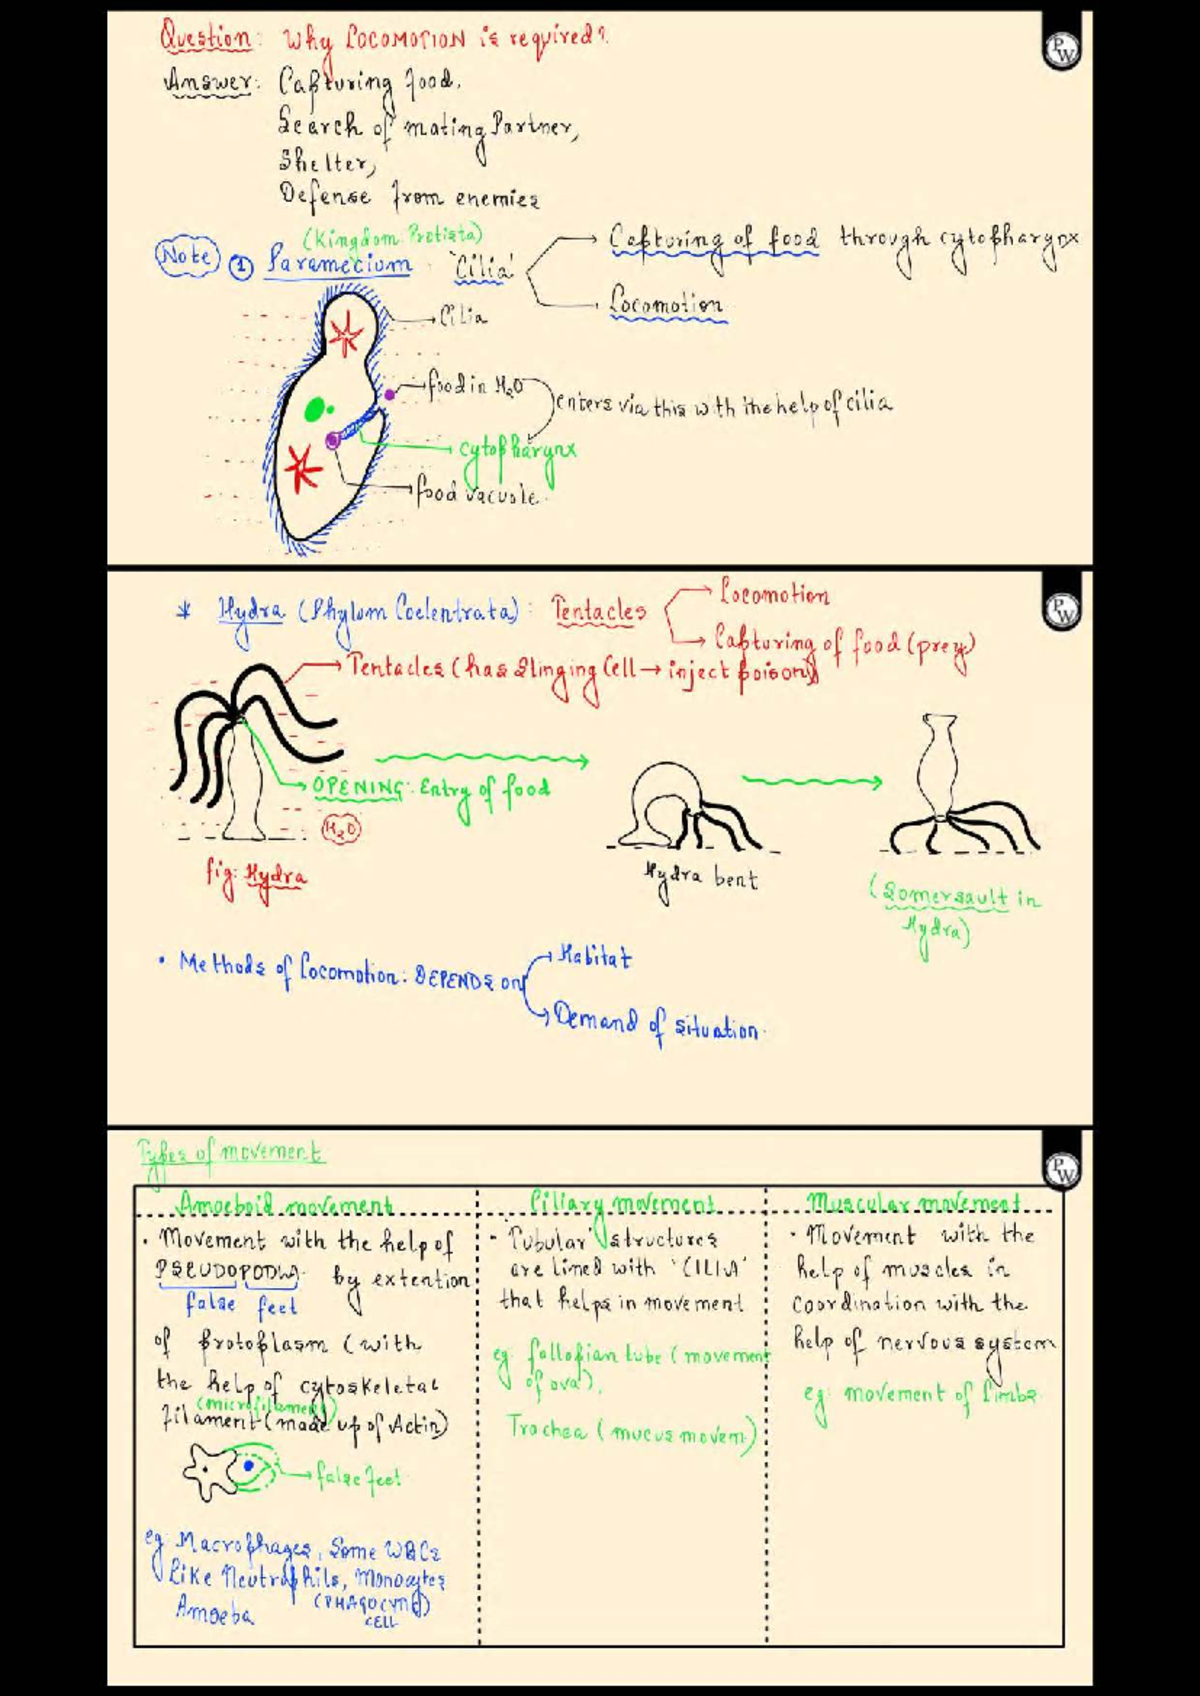 Question: Why Locomotion is required?
PW
Answer: Capturing food,
Search of mating Partner,
Shelter,
Defense from enemies
(Kingdom: Protista)
Note ① Paramecium : 'Cilia'
Capturing of food through cytopharynx
Locomotion
Cilia
food in H₂O
enters via this with the help of cilia
cytopharynx
food vacuole
* Hydra (Phylum Coelentrata): Tentacles
Locomotion
Capturing of food (prey)
PW
Tentacles (has Stinging Cell → inject poison)
OPENING: Entry of food
H₂O
fig: Hydra
Hydra bent
(Somersault in
Hydra)
• Methods of Locomotion: DEPENDS on
Habitat
Demand of situation.
Types of movement
PW
Amoeboid movement
• Movement with the help of
PSEUDOPODIA by extention
false feet
of protoplasm (with
the help of cytoskeletal
(microfilament)
filament (made up of Actin)
false feet
eg: Macrophages, Some WBCs
Like Neutrophils, Monocytes
(PHAGOCYTIC)
CELL
Amoeba
Ciliary movement
- 'Tubular' structures
are lined with 'CILIA'
that helps in movement
eg: fallopian tube (movement
of ova),
Trachea (mucus movem.)
Muscular movement
• Movement with the
help of muscles in
coordination with the
help of nervous system
eg: movement of Limbs